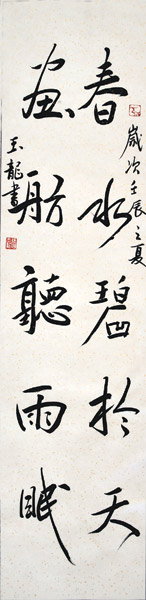 春水碧於天
画舫聽雨眠
歲次壬辰之夏
玉龍書